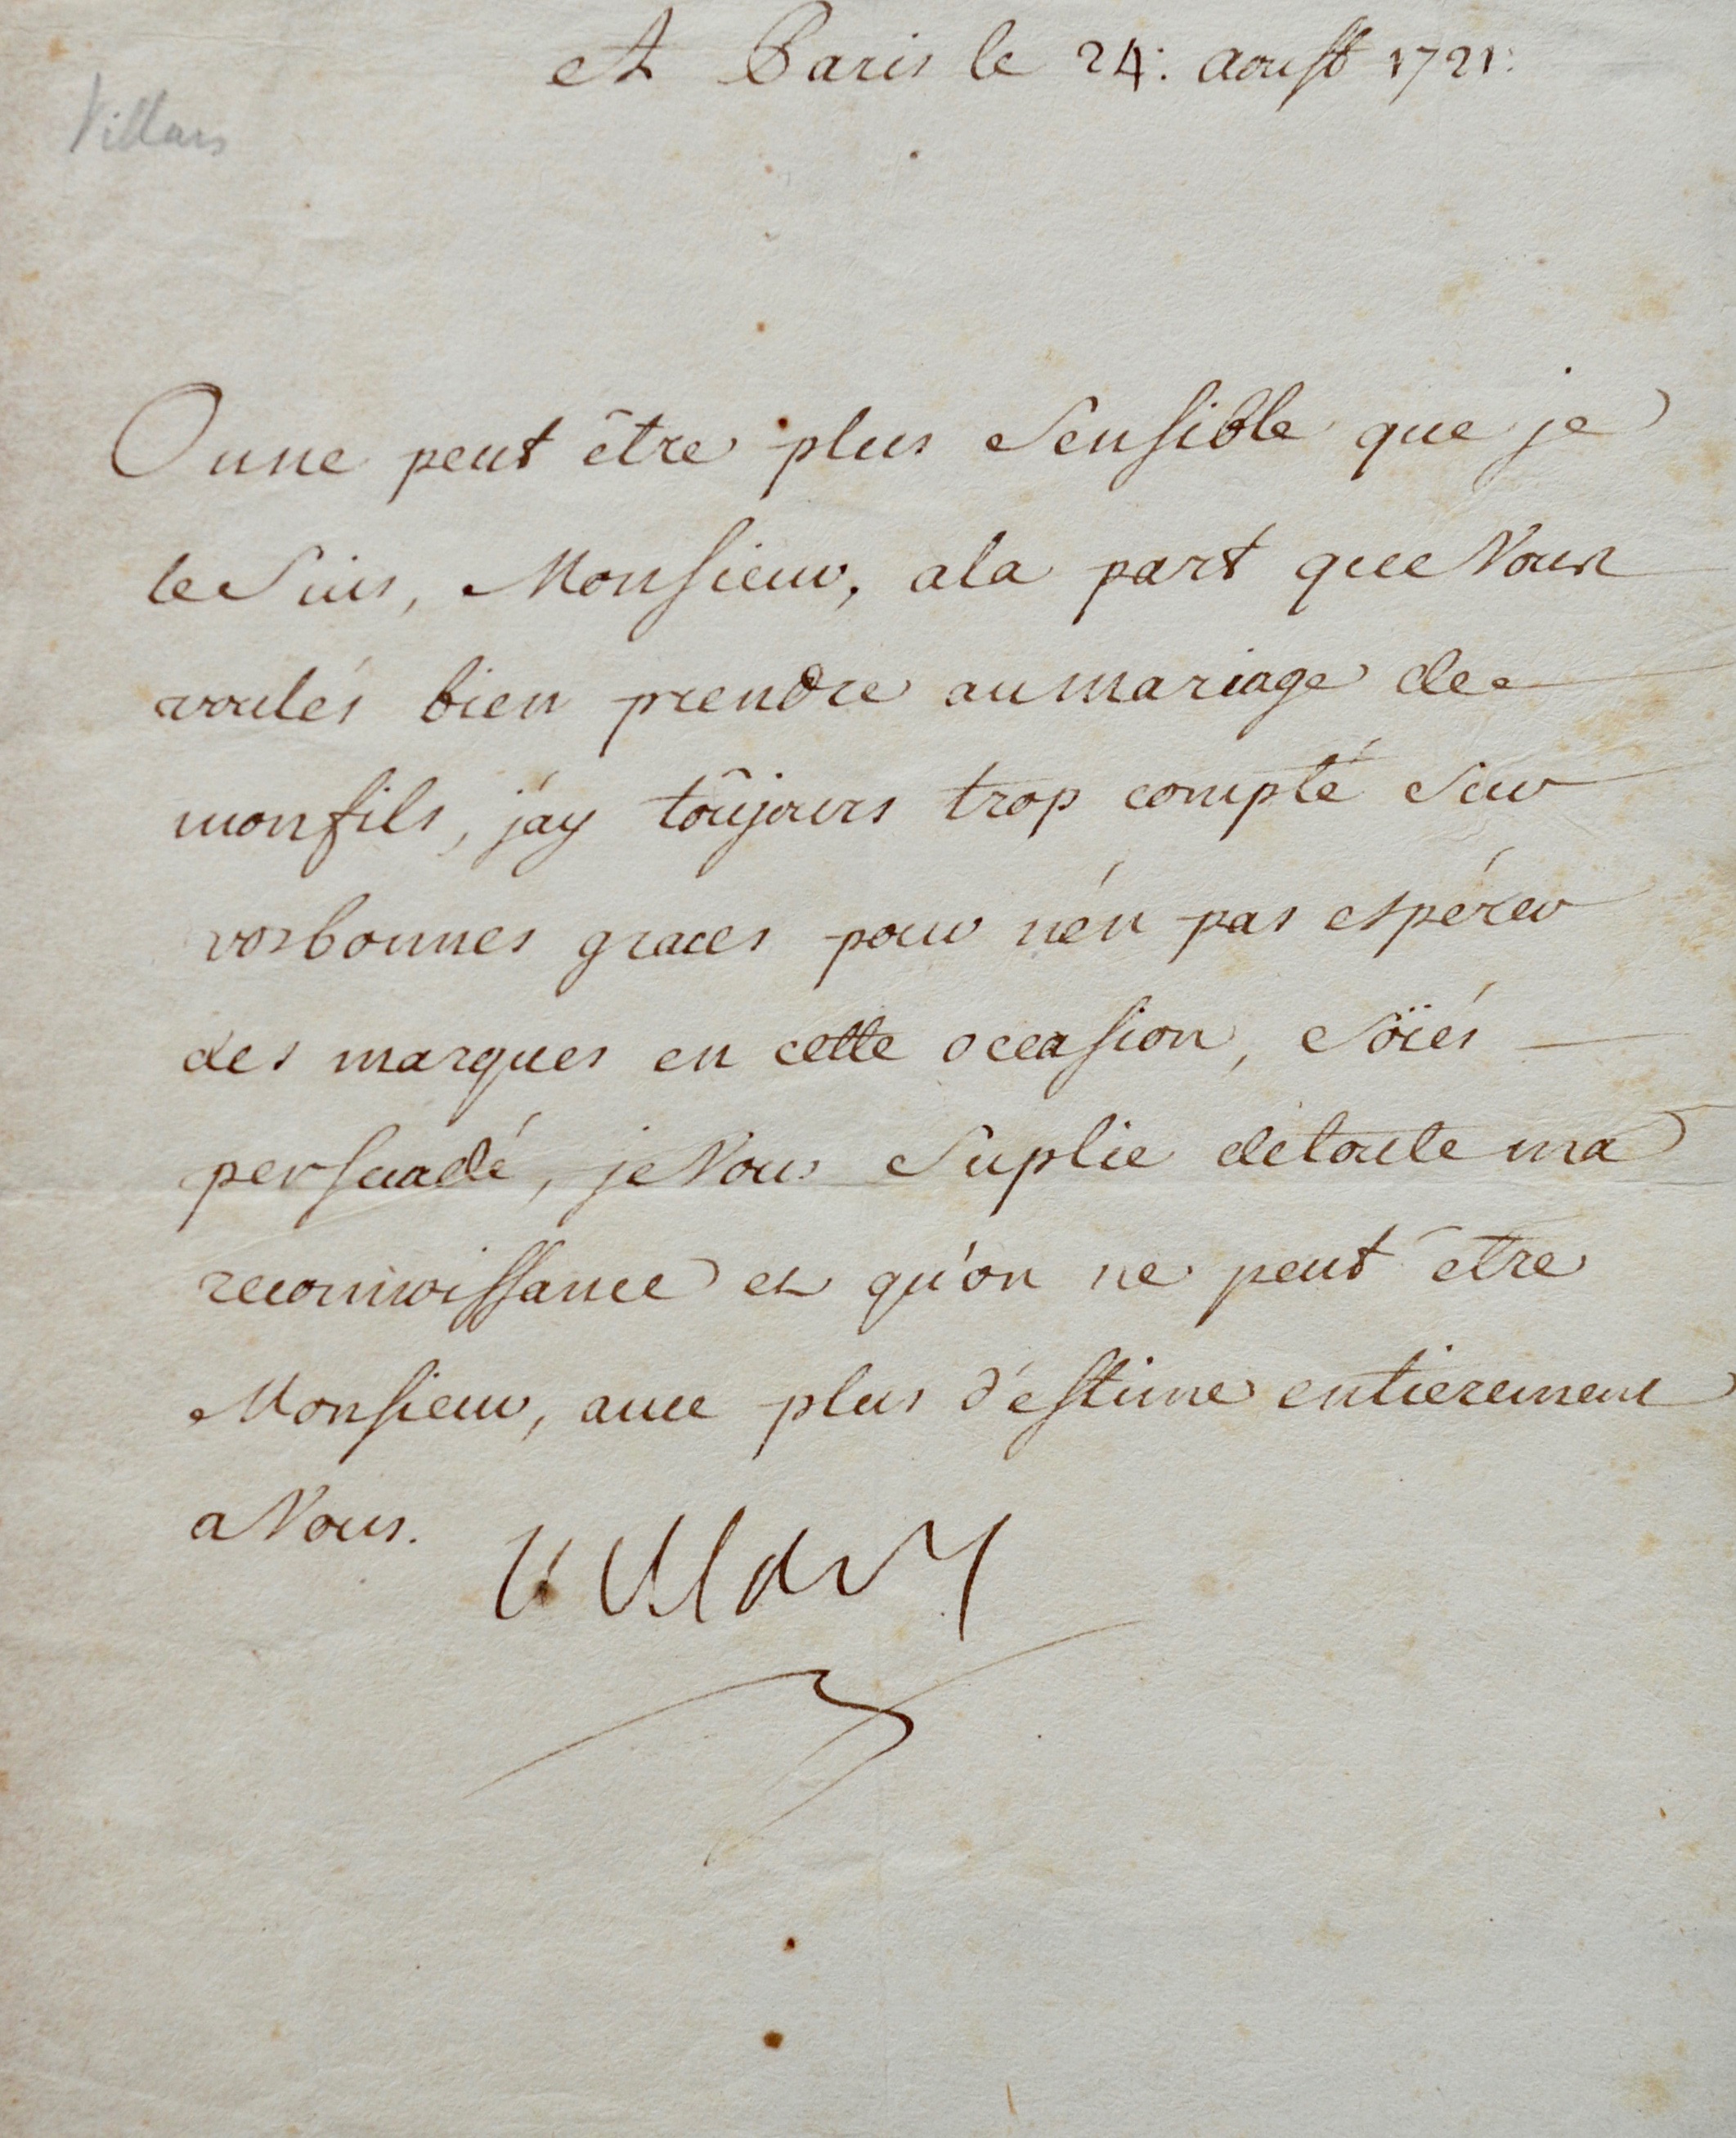 A Paris le 24: aoust 1721:
Villars
On ne peut être plus sensible que je
le suis, Monsieur, a la part que Vous
voulés bien prendre au mariage de
mon fils, j'ay toûjours trop compté sur
vos bonnes graces pour n'én pas espérer
des marques en cette occasion, soïés
persuadé, je Vous suplie de toute ma
reconnoissance et qu'on ne peut être
Monsieur, avec plus d'estime entierement
a Vous.
Villars